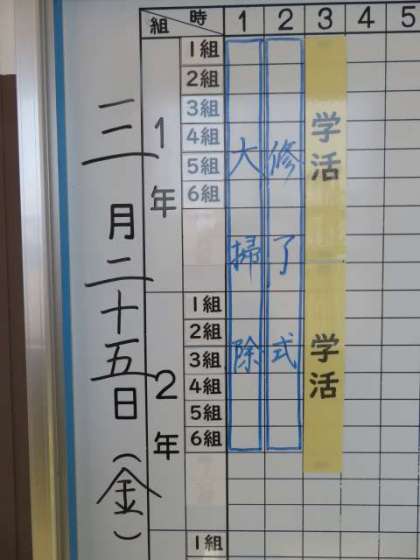 組 時 1 2 3 4 5
三月二十五日(金)
1年
1組
2組
3組
4組
5組
6組
2年
1組
2組
3組
4組
5組
6組
1組
大掃除
修了式
学活
学活